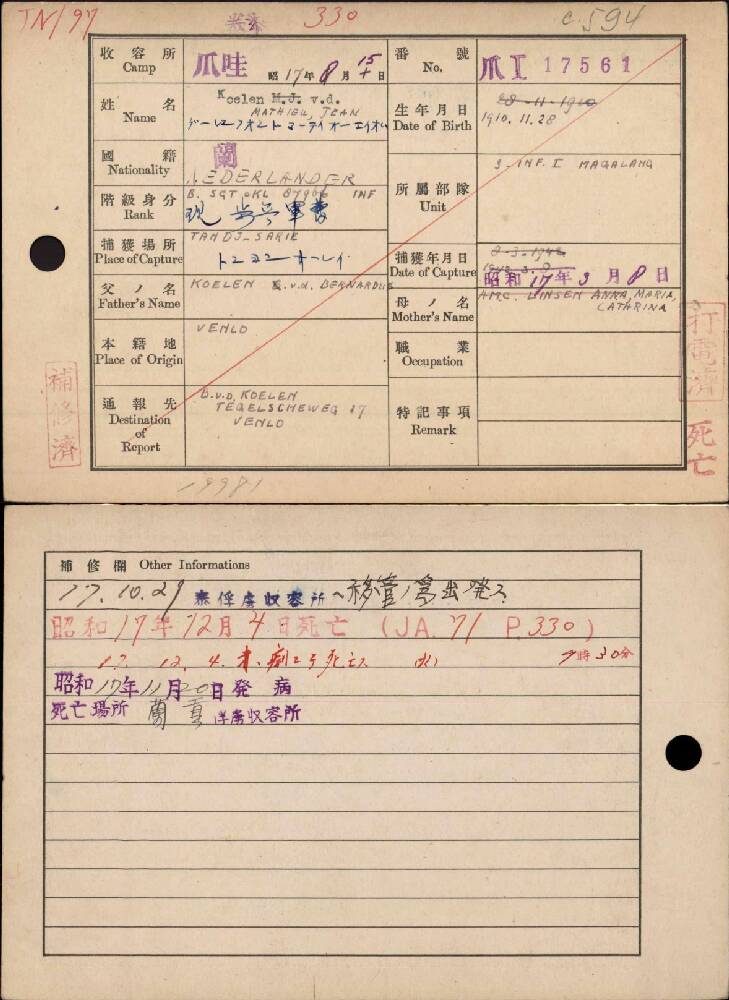 JN/97
330
C.594
收容所
Camp
爪哇
昭17年8月15日
番號
No.
爪I 17561
姓名
Name
Koelen M.J. v.d.
MATHIEU, JEAN
生年月日
Date of Birth
28-11-1910
1910.11.28
國籍
Nationality
蘭
NEDERLANDER
所屬部隊
Unit
3-INF. I MAGALANG
階級身分
Rank
B. SGT OKL 87966 INF
現 歩兵軍曹
捕獲場所
Place of Capture
TANDJ-SARIE
捕獲年月日
Date of Capture
8-3-1942
昭和17年3月8日
父ノ名
Father's Name
KOELEN B.v.d. BERNARDUS
母ノ名
Mother's Name
A.M.C. LINSEN ANNA, MARIA,
CATHRINA
本籍地
Place of Origin
VENLO
職業
Occupation
通報先
Destination
of
Report
B.v.D. KOELEN
TEGELSCHEWEG 17
VENLO
特記事項
Remark
補修済
打電済
死亡
19981
補修欄 Other Informations
17.10.29 泰俘虜収容所ヘ移管ノ為出発ス
昭和17年12月4日死亡 (JA.71 P.330)
17. 12. 4.
7時30分
昭和17年11月20日発病
死亡場所
俘虜収容所